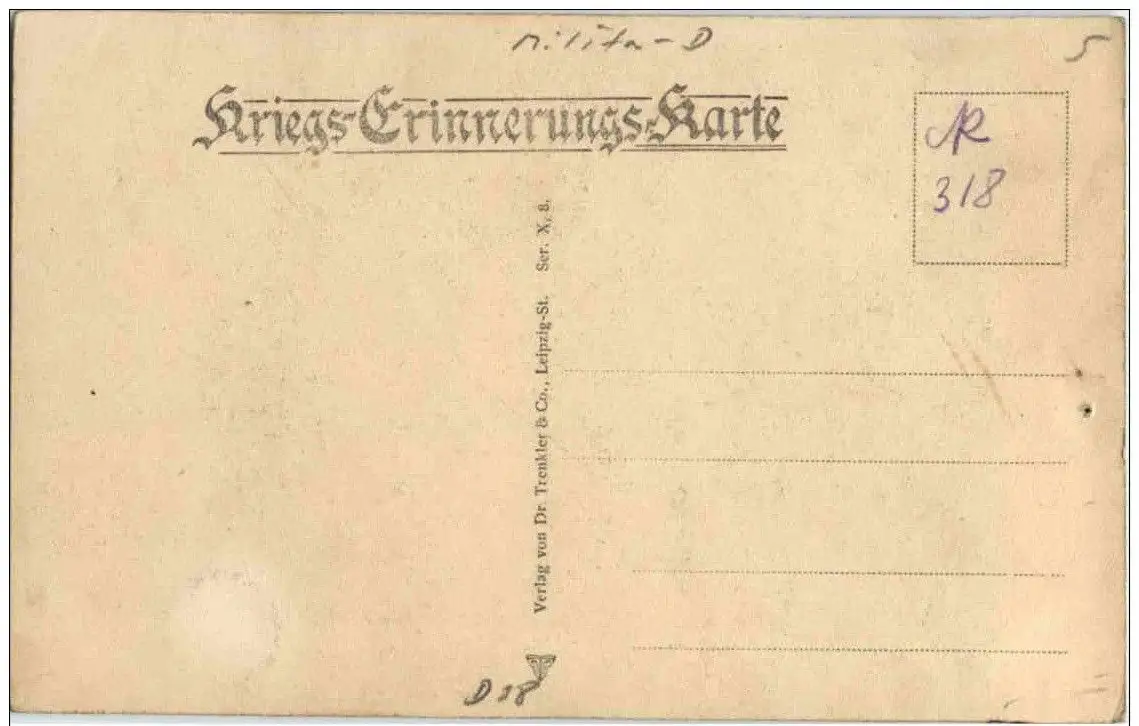 Militär-D
5
Kriegs-Erinnerungs-Karte
318
Verlag von Dr. Trenkler & Co., Leipzig-St. Ser. X, 8.